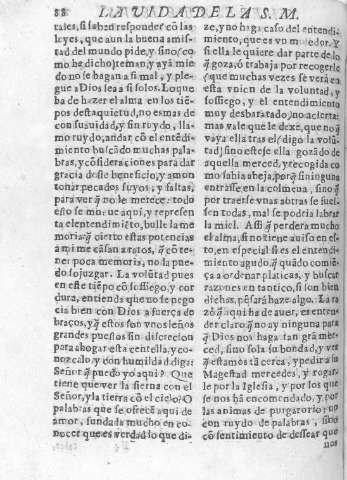 88 LA VIDA DE LA S. M.
tades, si saben responder cō las
leyes, que aun la buena amis-
tad del mundo pide, y sino (co
mo he dicho) teman, y aya mie
do no se hagan a si mal, y ple-
gue a Dios sea a si solos. Lo que
ha de hazer el alma en los tiē-
pos desta quietud, no es mas de
con suauidad, y sin ruydo, lla-
mo ruydo, andar cō el entendi-
miento buscādo muchas pala-
bras, y cōsideraciones para dar
gracia deste beneficio, y amon
tonar pecados suyos, y faltas,
para ver q̄ no le merece: todo
esto se mueue aqui, y represen
ta el entendimiēto, bulle la me
moria: q̄ cierto estas potencias
a mi me cāsan a ratos, q̄ cō te-
ner poca memoria, no la pue-
do sojuzgar. La volūtad pues
en este tiēpo cō sossiego, y cor
dura, entienda que no se nego
cia bien con Dios a fuerça de
braços, y q̄ estos son vnos leños
grandes puestos sin discrecion
para ahogar esta centella, y co-
nozcalo, y con humildad diga:
Señor q̄ puedo yo aqui? Que
tiene que ver la sierua con el
Señor, y la tierra cō el cielo? O
palabras que se ofrecē aqui de
amor, fundada mucho en co-
nocer que es verdad lo que di-
ze, y no haga caso del entendi-
miento, que es vn moledor. Y
si ella le quiere dar parte de lo
q̄ goza, ò trabaja por recogerle
(que muchas vezes se verà en
esta vnion de la voluntad, y
sossiego, y el entendimiento
muy desbaratado) no acierta:
mas vale que le dexe, que no q̄
vaya ella tras el (digo la volū-
tad) sino estese ella gozādo de
aquella merced, y recogida co
mo sabia abeja, porq̄ si ninguna
entrasse en la colmena, sino q̄
por traerse vnas a otras se fues-
sen todas, mal se podria labrar
la miel. Assi q̄ perdera mucho
el alma, si no tiene auiso en es-
to, en especial si es el entendi-
miento agudo, q̄ quādo comiē-
ça a ordenar platicas, y buscar
razones en tantico, si son bien
dichas, pēsarà haze algo. La ra
zō q̄ aqui ha de auer, es enten-
der claro, q̄ no ay ninguna para
q̄ Dios nos haga tan grā mer-
ced, sino sola su bondad, y ver
q̄ estamos tā cerca, y pedir a su
Magestad mercedes, y rogar-
le por la Iglesia, y por los que
se nos hā encomendado, y por
las animas de purgatorio, no
con ruydo de palabras, sino
cō sentimiento de dessear que
nos